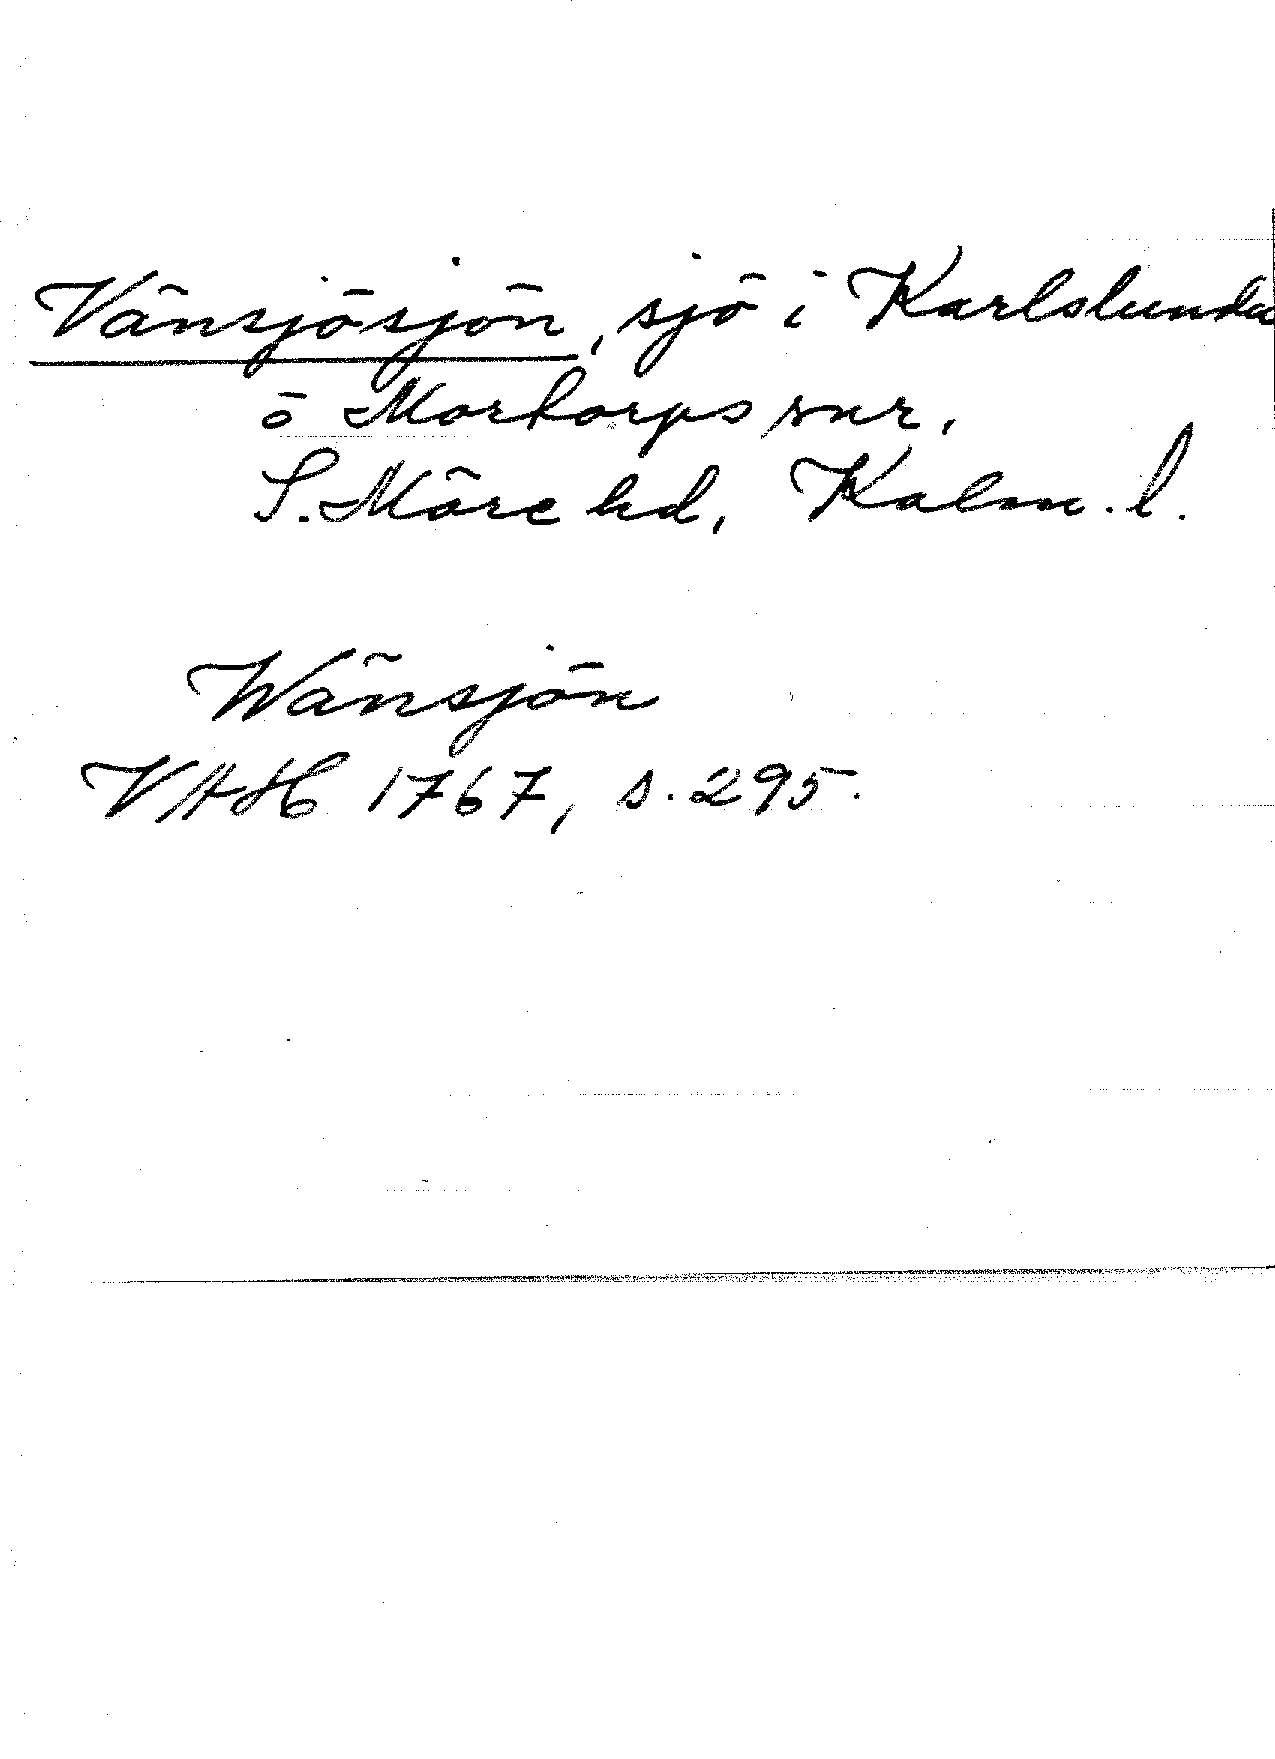 Vänsjösjön, sjö i Karlslunda
o Mortorps snr,
S. Möre hd, Kalm. l.
Wänsjön
VAH 1767, s. 295.